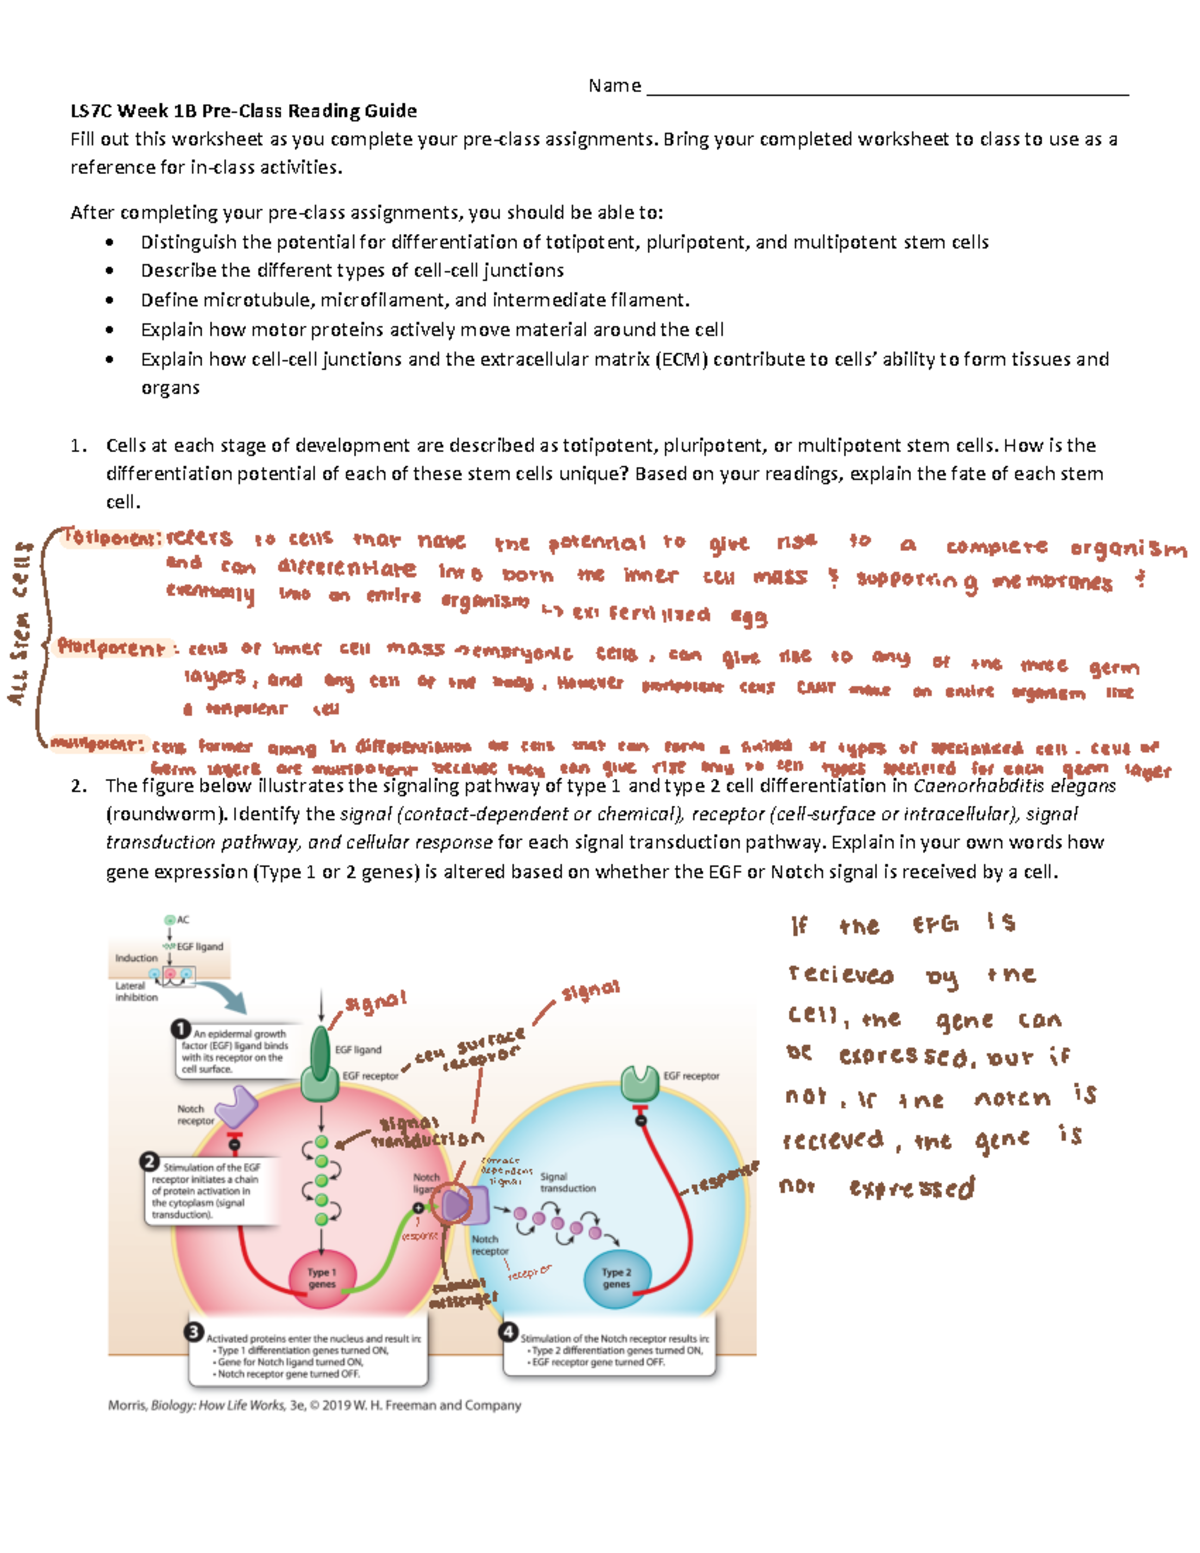 Name
LS7C Week 1B Pre-Class Reading Guide
Fill out this worksheet as you complete your pre-class assignments. Bring your completed worksheet to class to use as a
reference for in-class activities.
After completing your pre-class assignments, you should be able to:
• Distinguish the potential for differentiation of totipotent, pluripotent, and multipotent stem cells
• Describe the different types of cell-cell junctions
• Define microtubule, microfilament, and intermediate filament.
• Explain how motor proteins actively move material around the cell
• Explain how cell-cell junctions and the extracellular matrix (ECM) contribute to cells’ ability to form tissues and
organs
1. Cells at each stage of development are described as totipotent, pluripotent, or multipotent stem cells. How is the
differentiation potential of each of these stem cells unique? Based on your readings, explain the fate of each stem
cell.
All stem cells
Totipotent: refers to cells that have the potential to give rise to a complete organism
and can differentiate into both the inner cell mass & supporting membranes &
eventually into an entire organism ↳ ex: fertilized egg
Pluripotent: cells of inner cell mass → embryonic cells, can give rise to any of the three germ
layers, and any cell of the body. However pluripotent cells can't make an entire organism like
a totipotent cell
multipotent: cells further along in differentiation are cells that can form a limited # of types of specialized cell. cells of
germ layers are multipotent because they can give rise only to cell types specified for each germ layer
2. The figure below illustrates the signaling pathway of type 1 and type 2 cell differentiation in Caenorhabditis elegans
(roundworm). Identify the signal (contact-dependent or chemical), receptor (cell-surface or intracellular), signal
transduction pathway, and cellular response for each signal transduction pathway. Explain in your own words how
gene expression (Type 1 or 2 genes) is altered based on whether the EGF or Notch signal is received by a cell.
AC
EGF ligand
Induction
Lateral
inhibition
1 An epidermal growth
factor (EGF) ligand binds
with its receptor on the
cell surface.
signal
signal
EGF ligand
cell surface
receptor
EGF receptor
EGF receptor
Notch
receptor
signal
transduction
2 Stimulation of the EGF
receptor initiates a chain
of protein activation in
the cytoplasm (signal
transduction).
contact
dependent
signal
Notch
ligand
Signal
transduction
response
response
Notch
receptor
receptor
Type 1
genes
Type 2
genes
chemical
messenger
3 Activated proteins enter the nucleus and result in:
• Type 1 differentiation genes turned ON,
• Gene for Notch ligand turned ON,
• Notch receptor gene turned OFF.
4 Stimulation of the Notch receptor results in:
• Type 2 differentiation genes turned ON,
• EGF receptor gene turned OFF.
If the EFG is
recieved by the
cell, the gene can
be expressed, but if
not, if the notch is
recieved, the gene is
not expressed
Morris, Biology: How Life Works, 3e, © 2019 W. H. Freeman and Company